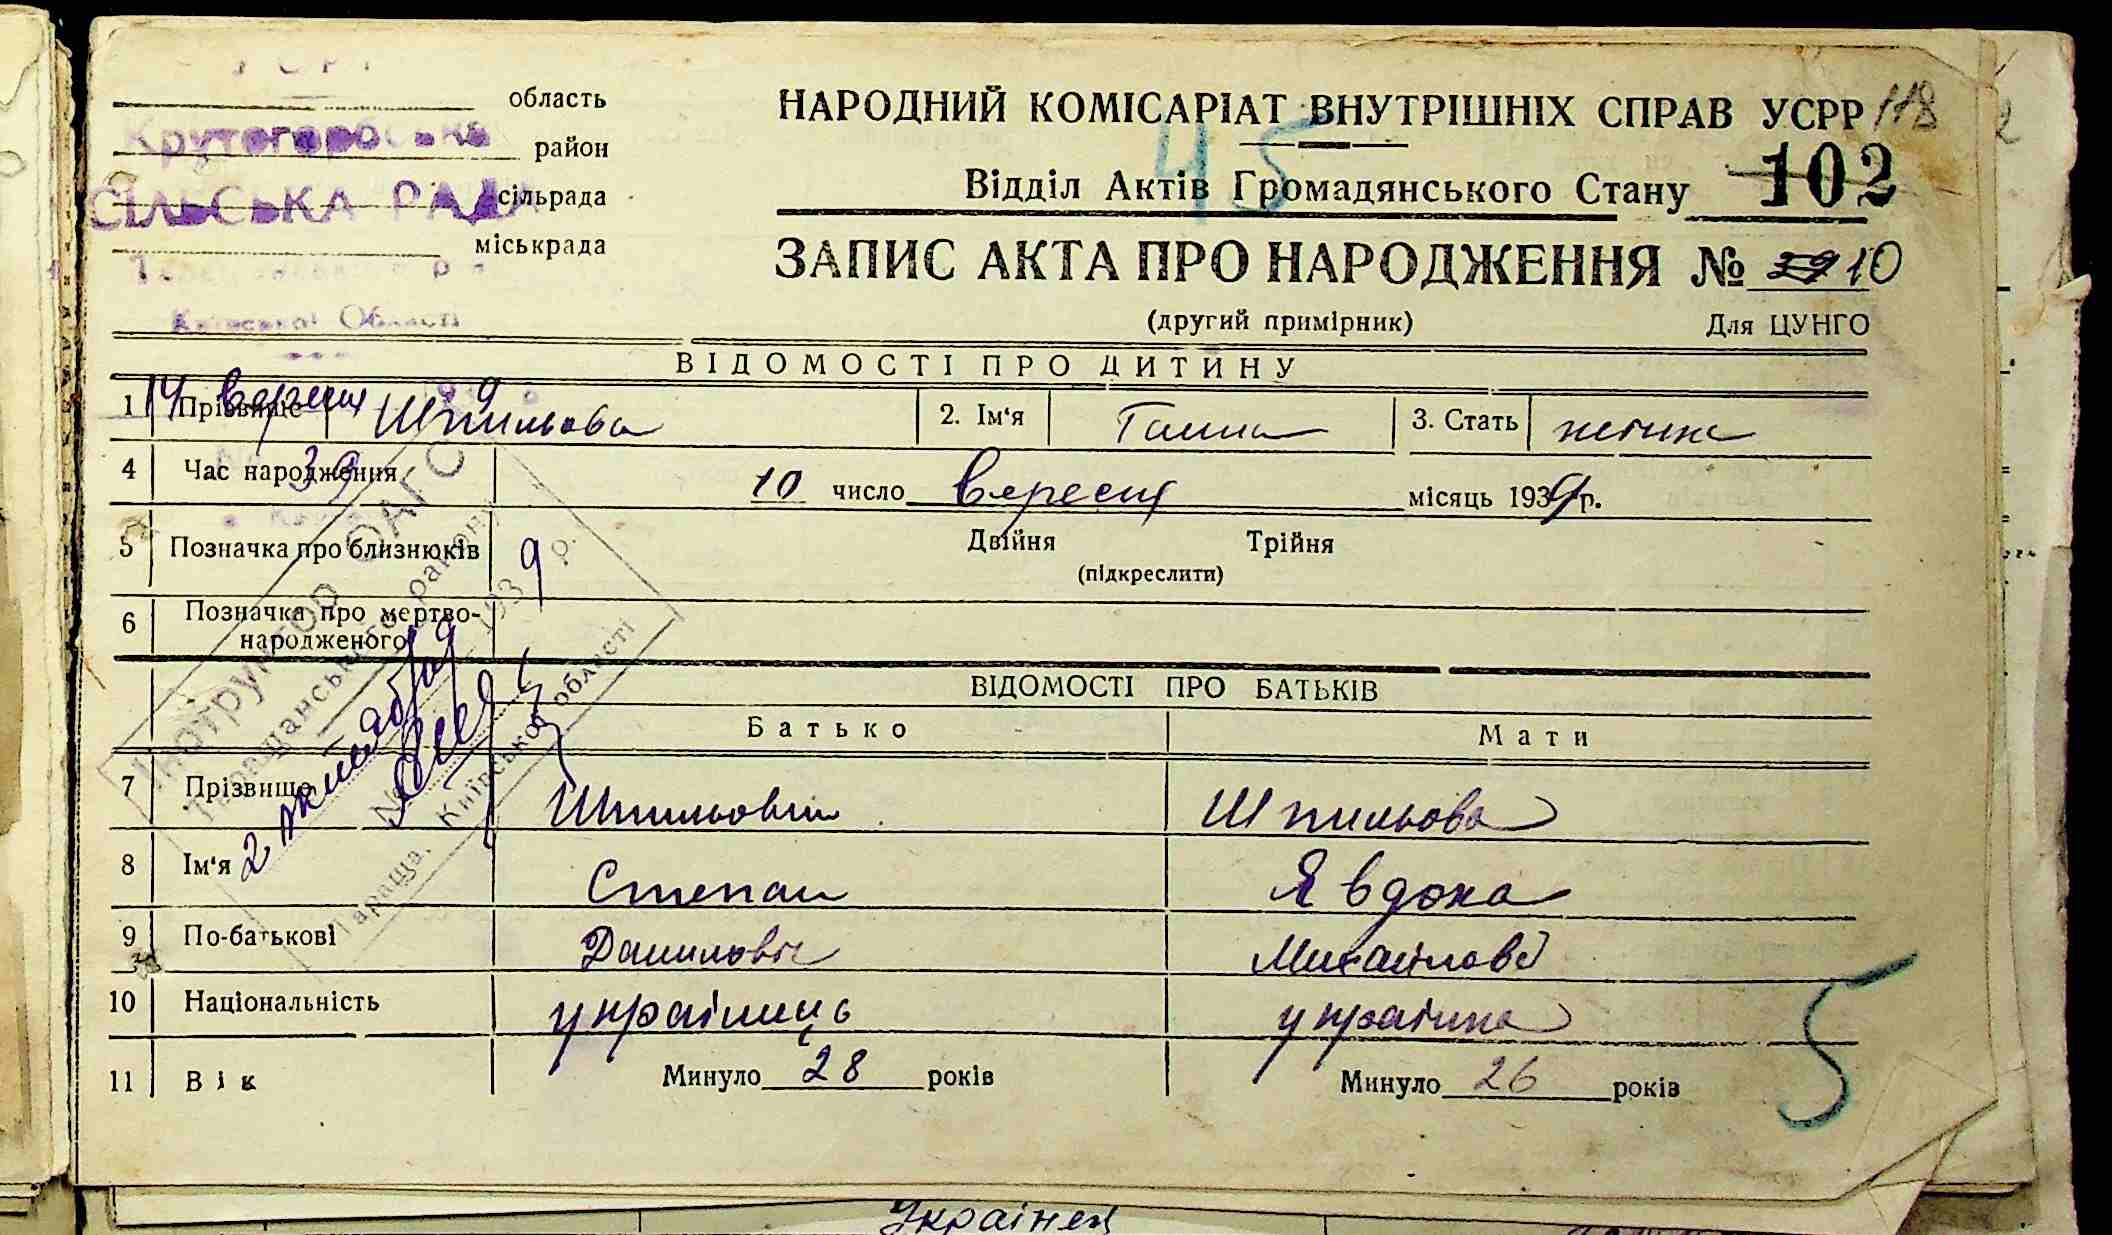 область
Крутогорбська
район
СІЛЬСЬКА РАДА
сільрада
міськрада
Київської Області
НАРОДНИЙ КОМІСАРІАТ ВНУТРІШНІХ СПРАВ УСРР 118
45
Відділ Актів Громадянського Стану 102
ЗАПИС АКТА ПРО НАРОДЖЕННЯ № 10
(другий примірник) Для ЦУНГО
ВІДОМОСТІ ПРО ДИТИНУ
14 вересня 9
1 Прізвище Шпильова 2. Ім'я Ганна 3. Стать жіноча
39
4 Час народження 10 число вересня місяць 1939 р.
5 Позначка про близнюків Двійня Трійня
(підкреслити)
6 Позначка про мертво-
народженого
Інструктор ОАГС
Таращанського району
1939 р.
Таращa, Київської області
ВІДОМОСТІ ПРО БАТЬКІВ
Батько Мати
7 Прізвище Шпильовий Шпильова
8 Ім'я Степан Явдоха
9 По-батькові Данилович Михайлов
10 Національність українець українка
11 Вік Минуло 28 років Минуло 26 років
5
Українец